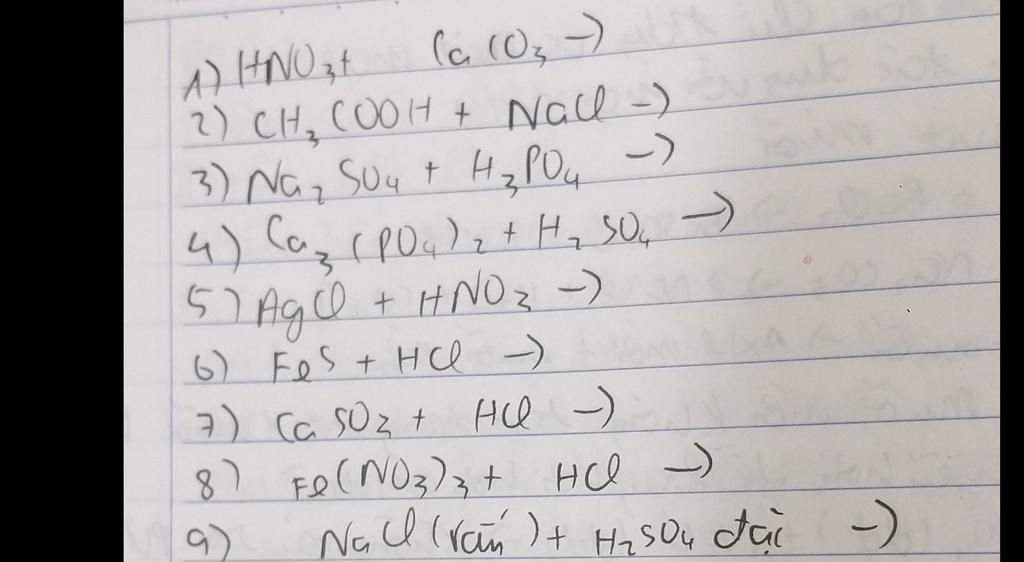 1) HNO3 + CaCO3 →
2) CH3COOH + NaCl →
3) Na2SO4 + H3PO4 →
4) Ca3(PO4)2 + H2SO4 →
5) AgCl + HNO3 →
6) FeS + HCl →
7) CaSO3 + HCl →
8) Fe(NO3)3 + HCl →
9) NaCl (rắn) + H2SO4 đặc →